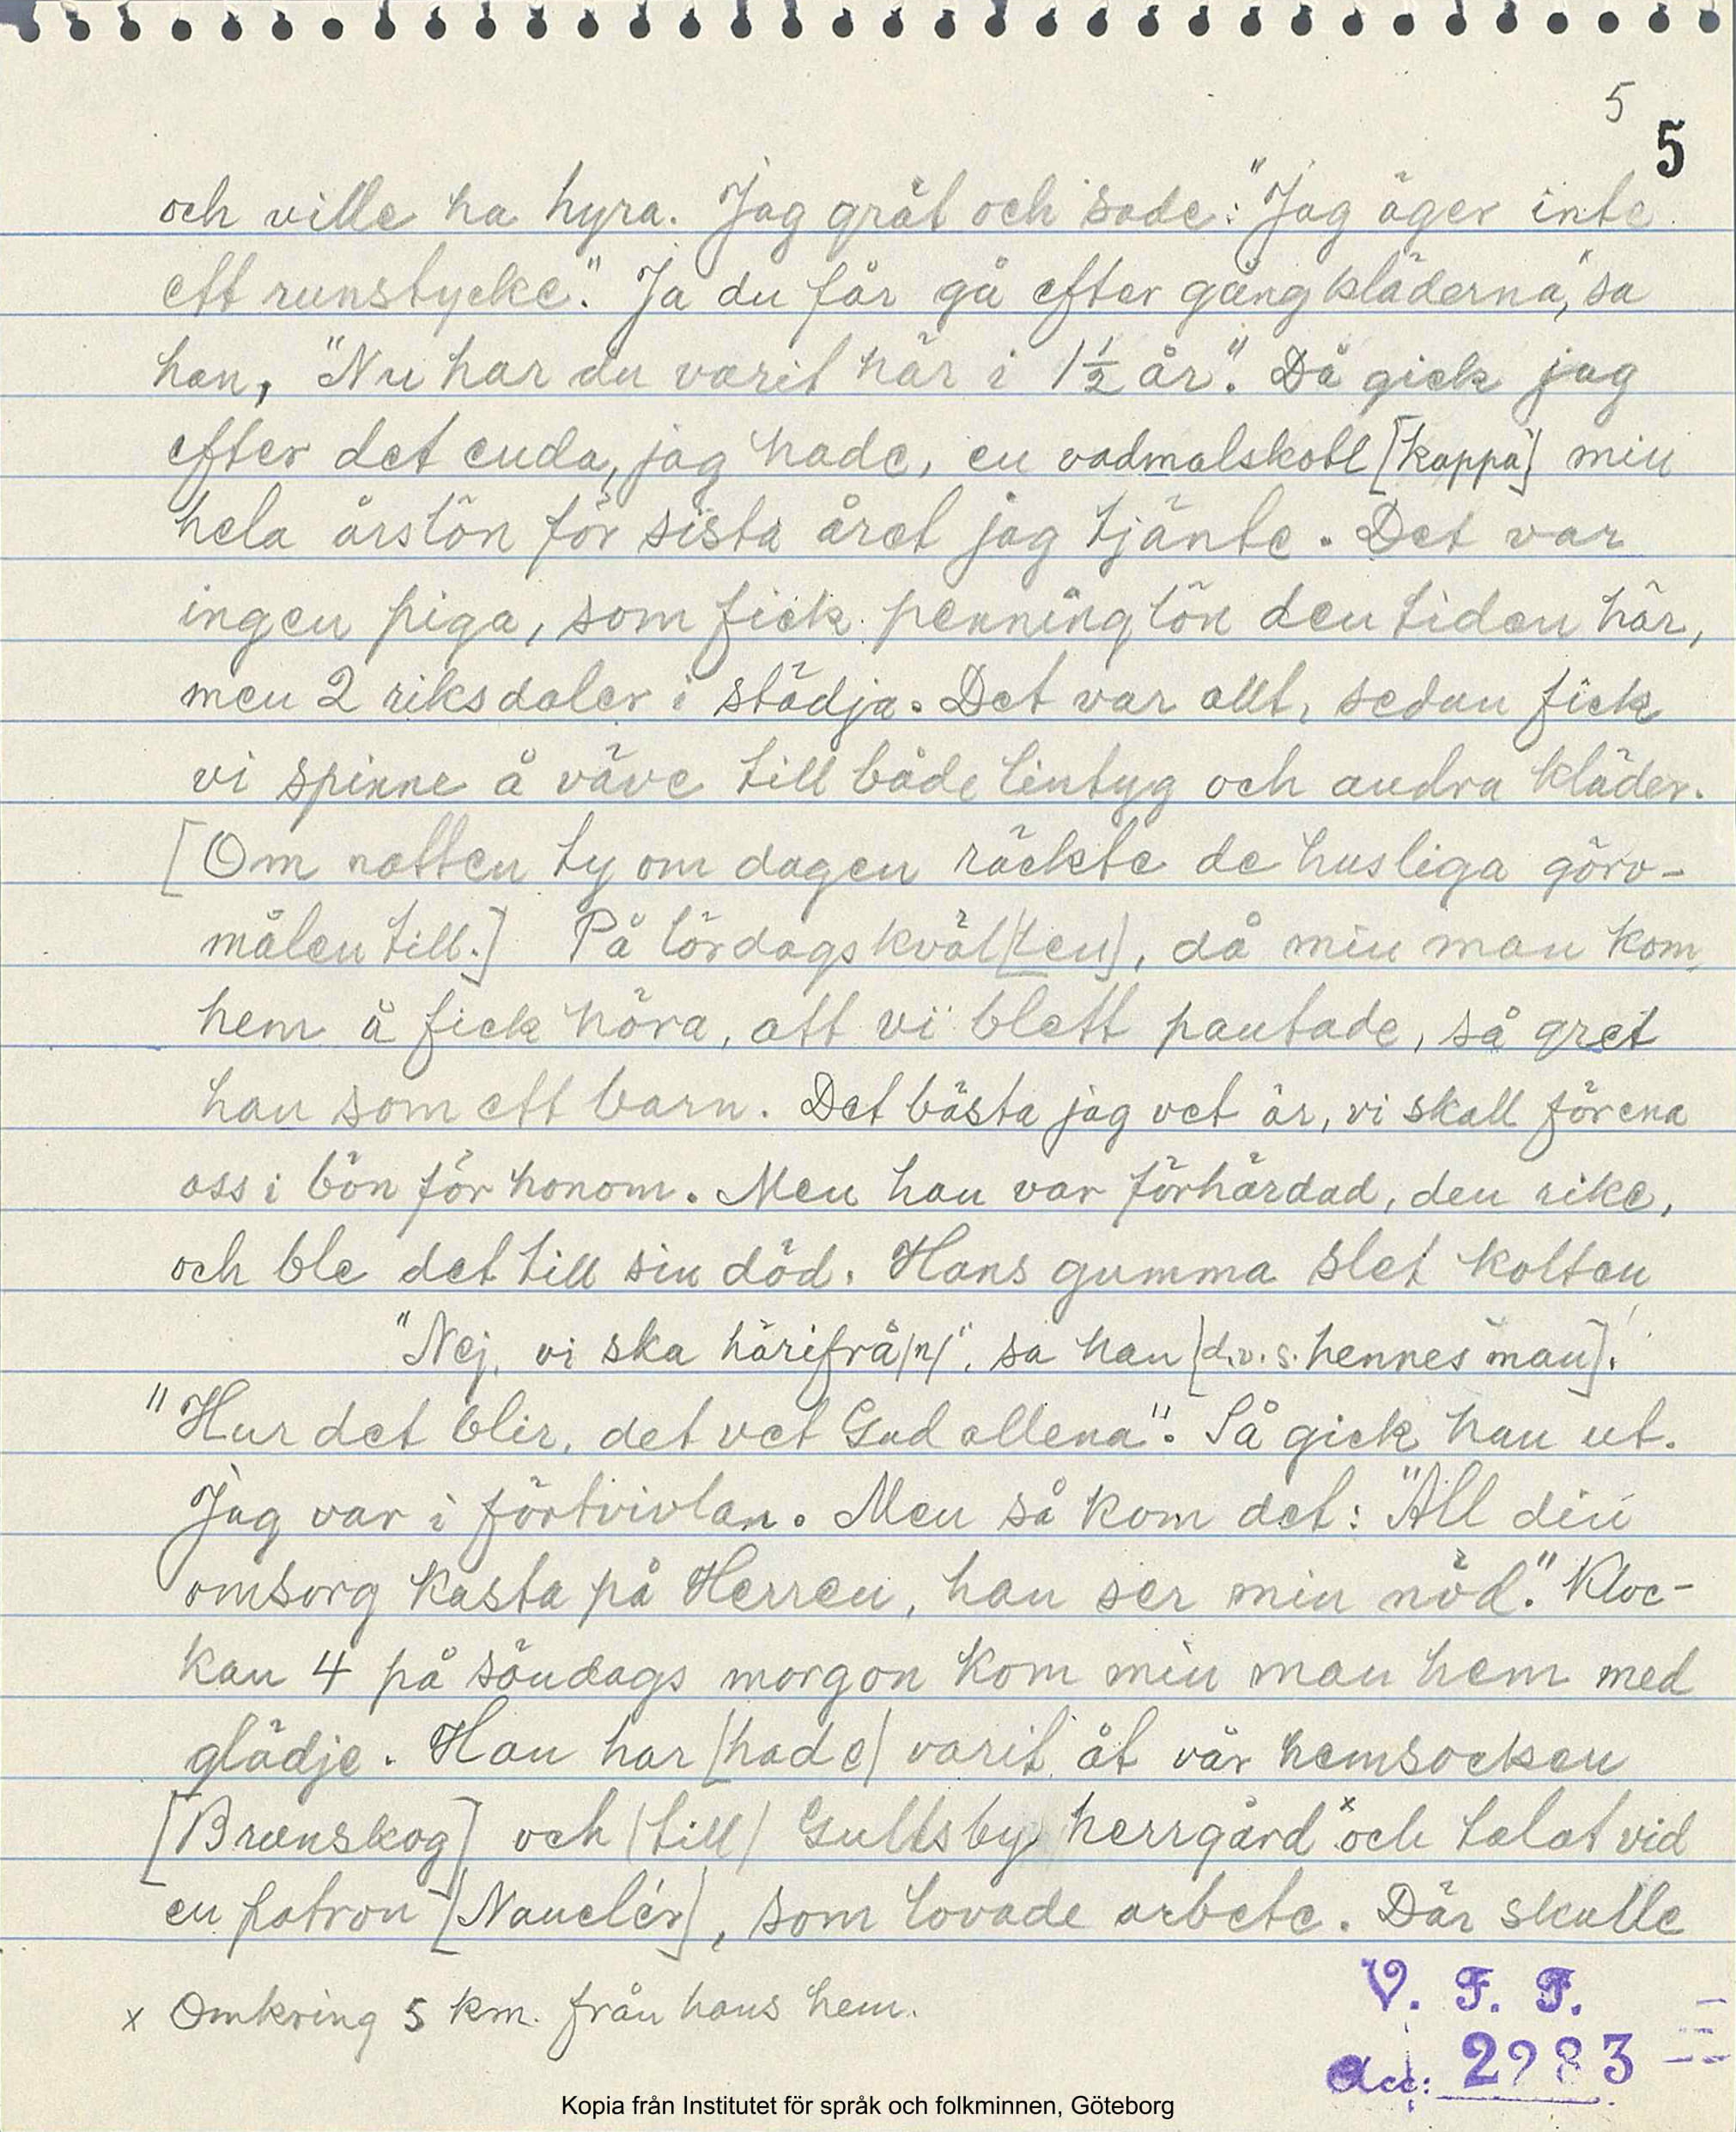 5
5
och ville ha hyra. Jag gråt och sade: "Jag äger inte
ett runstycke." Ja du får gå efter gångkläderna", sa
han, "Nu har du varit här i 1½ år." Då gick jag
efter det enda, jag hade, en vadmalskolt [kappa] min
hela årslön för sista året jag tjänte. Det var
ingen piga, som fick penninglön den tiden här,
men 2 riksdaler i städja. Det var allt, sedan fick
vi spinne å väve till både lintyg och andra kläder.
[Om natten ty om dagen räckte de husliga göro-
målen till.] På lördagskväl[len], då min man kom
hem å fick höra, att vi blett pantade, så gret
han som ett barn. Det bästa jag vet är, vi skall förena
oss i bön för honom. Men han var förhärdad, den rike,
och ble det till sin död. Hans gumma slet kolten
"Nej, vi ska härifrå/n/", sa han [d.v.s. hennes man].
"Hur det blir, det vet Gud allena". Så gick han ut.
Jag var i förtvivlan. Men så kom det: "All din
omsorg kasta på Herren, han ser min nöd." Kloc-
kan 4 på söndags morgon kom min man hem med
glädje. Han har [hade] varit åt vår hemsocken
[Brunskog] och (till) Gullsby herrgård x och talat vid
en patron [Nauclér], som lovade arbete. Där skulle
x Omkring 5 km. från hans hem.
V. F. F.
Acc: 2983
Kopia från Institutet för språk och folkminnen, Göteborg